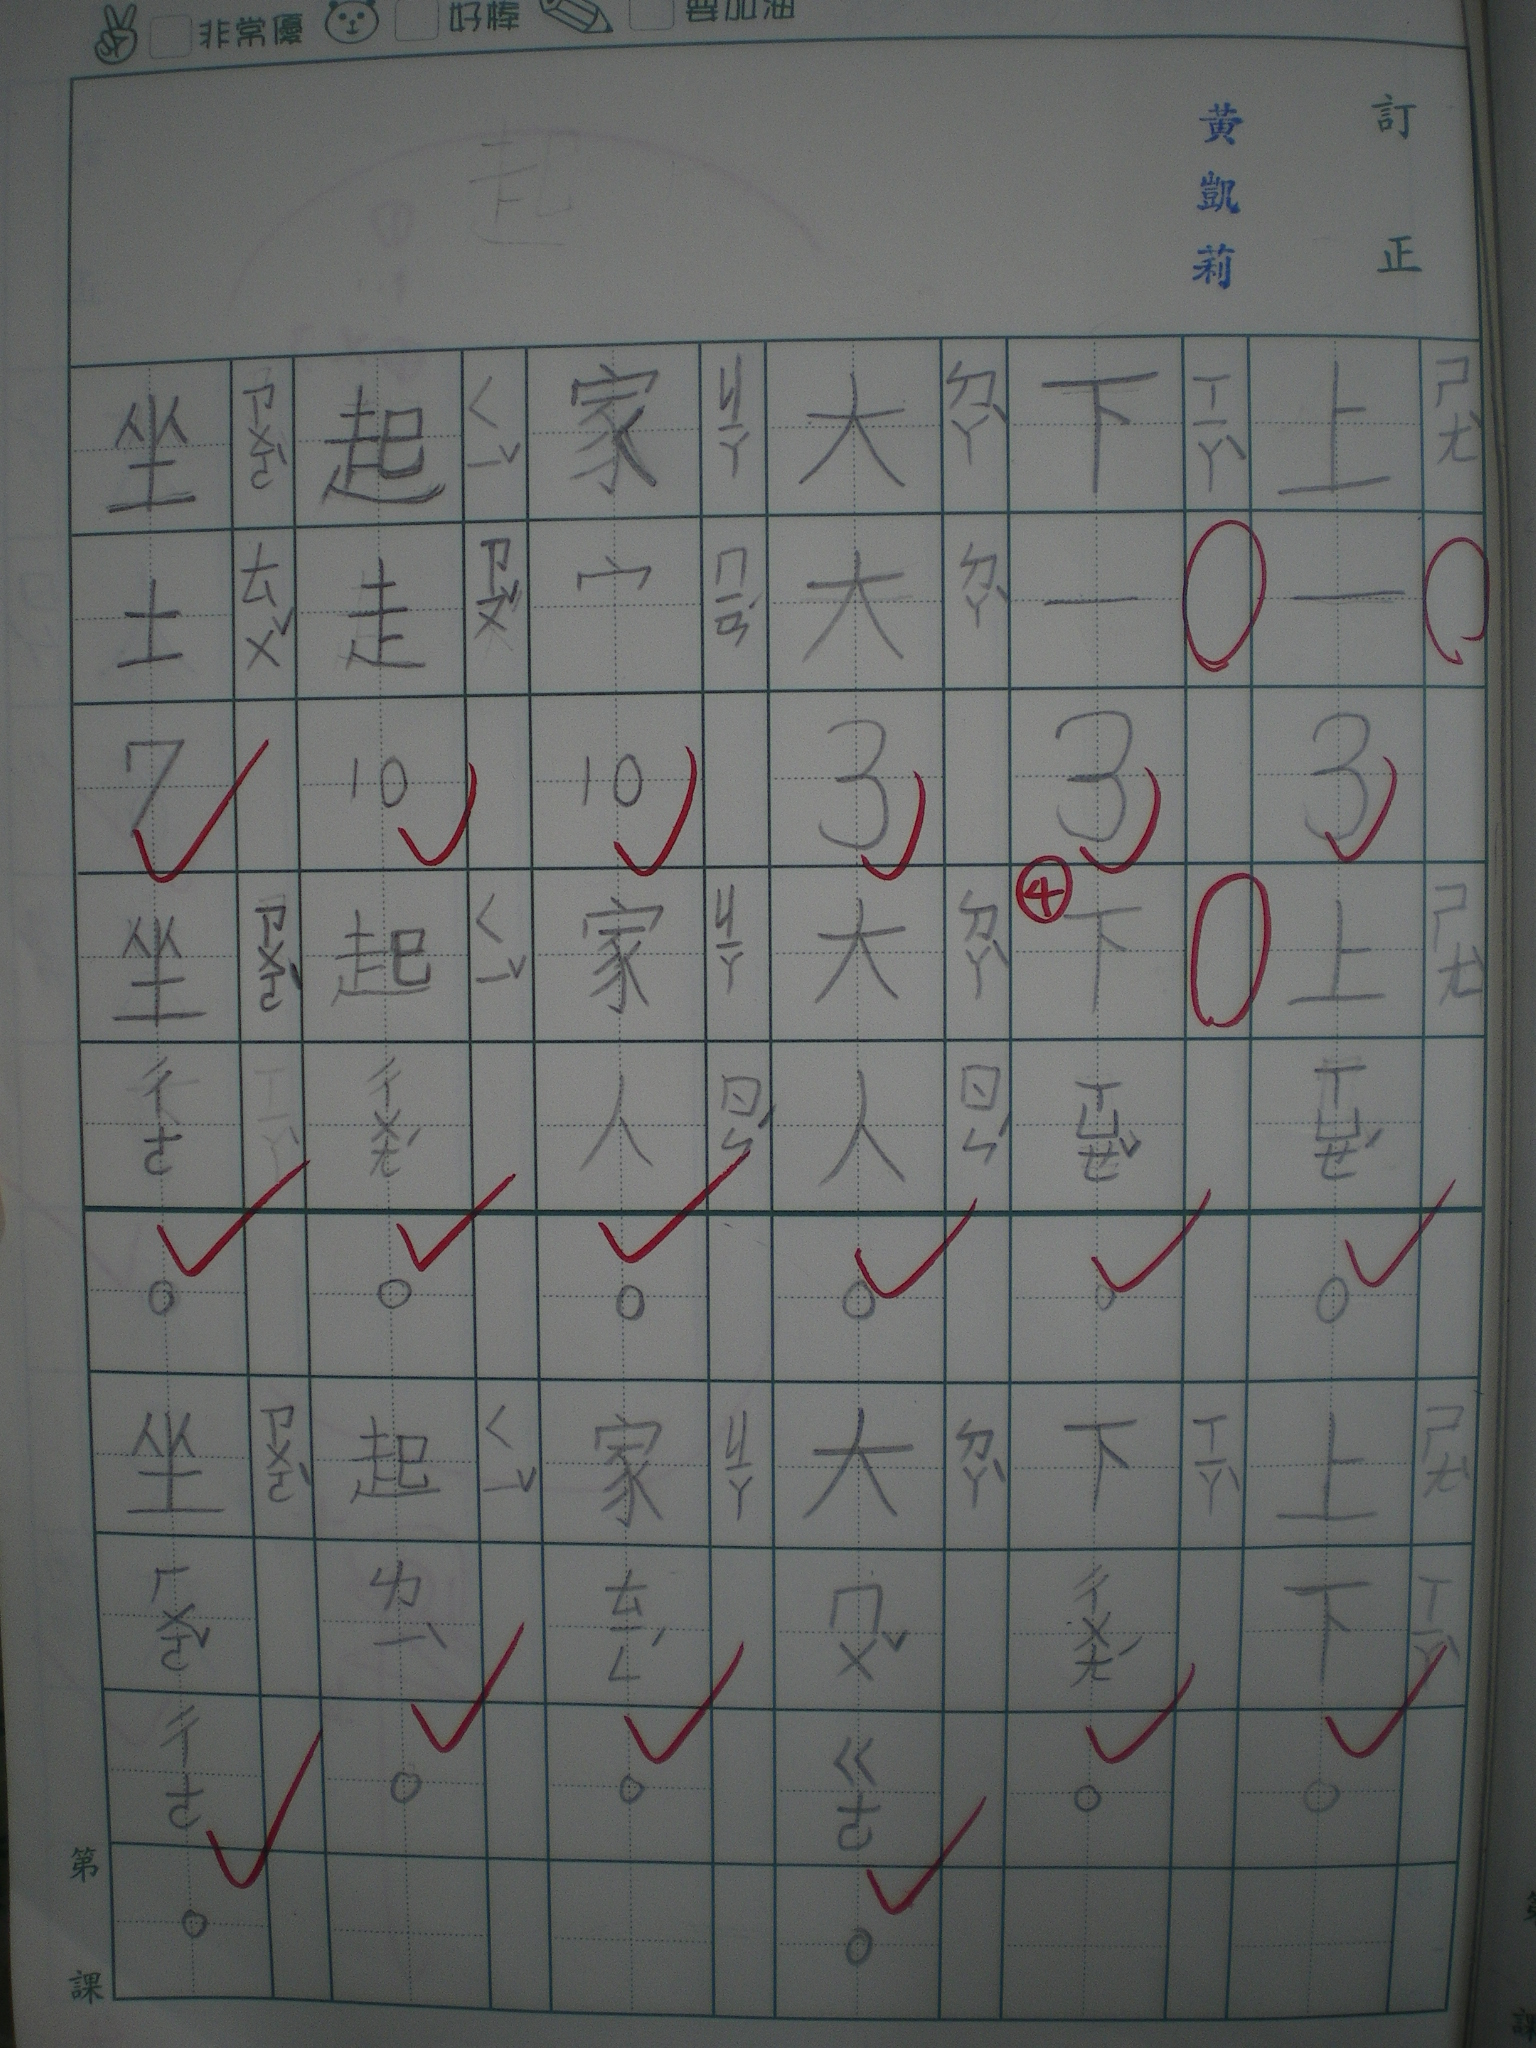 非常優 好棒 要加油
訂正
黃凱莉
上 ㄕㄤˋ 一 3 上 ㄕㄤˋ ㄒㄩㄝˊ 。 上 ㄕㄤˋ 下 ㄒㄧㄚˋ 。
下 ㄒㄧㄚˋ 一 3 ④ 下 ㄒㄩㄝˇ 。 下 ㄒㄧㄚˋ ㄔㄨㄤˊ 。
大 ㄉㄚˋ 大 ㄉㄚˋ 3 大 ㄉㄚˋ 人 ㄖㄣˊ 。 大 ㄉㄚˋ ㄇㄨˇ ㄍㄜ 。
家 ㄐㄧㄚ 宀 ㄇㄧㄢˊ 10 家 ㄐㄧㄚ 人 ㄖㄣˊ 。 家 ㄐㄧㄚ ㄊㄧㄥˊ 。
起 ㄑㄧˇ 走 ㄗㄡˇ 10 起 ㄑㄧˇ ㄔㄨㄤˊ 。 起 ㄑㄧˇ ㄌㄧˋ 。
坐 ㄗㄨㄛˋ 土 ㄊㄨˇ 7 坐 ㄗㄨㄛˋ ㄔㄜ 。 坐 ㄗㄨㄛˋ ㄏㄨㄛˇ ㄔㄜ 。
第 課